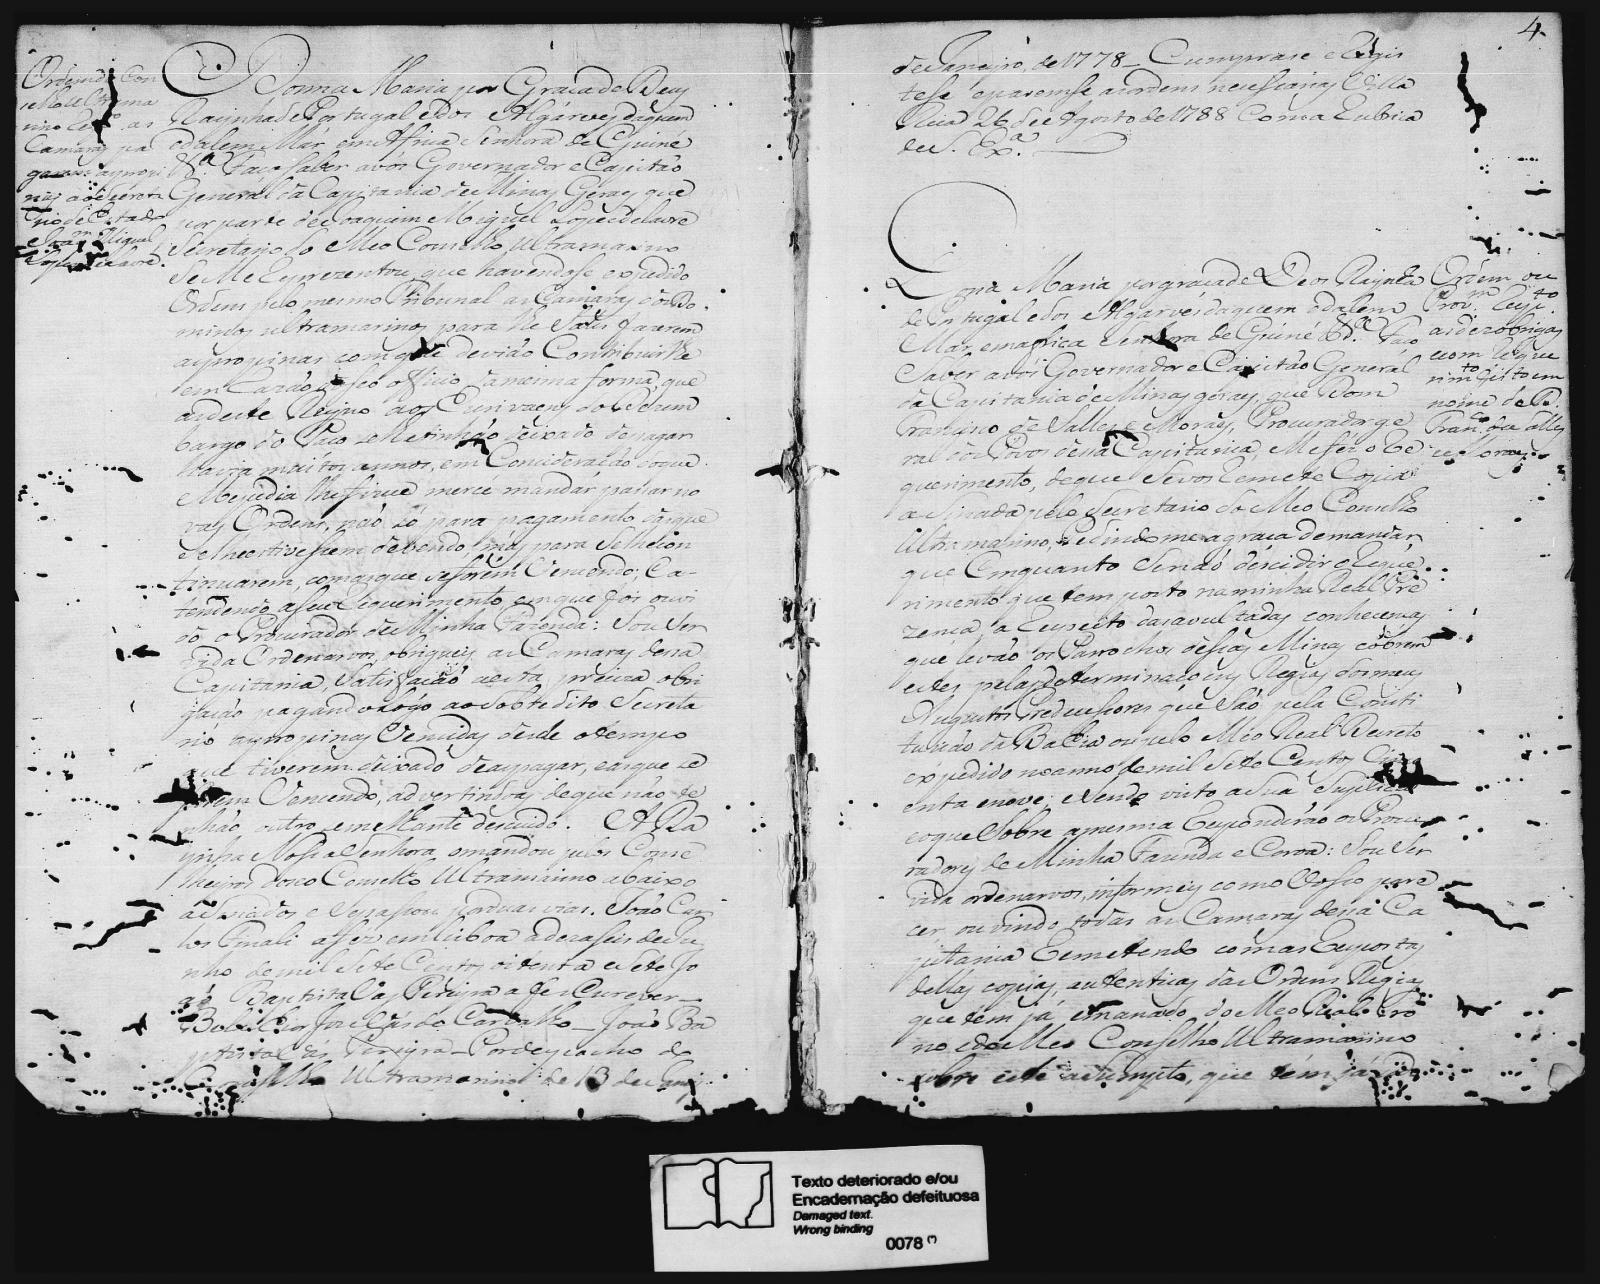 Donna Maria por Graça de Deus
Raynha de Portugal e dos Algárves daquem
e dalem Már em Africa Senhora de Guiné
&ª. Faço saber avós Governador e Capitão
General da Capitania de Minas Geraes que
por parte de Joaquim Miguel Lopes de Lavre
Secretario do Meo Conselho Ultramarino
Se Me Reprezentou que havendose expedido
Ordem pelo mesmo Tribunal as Camaras dos Do-
minios ultramarinos para lhe Satisfazerem
as propinas com que devião Contribuirlhe
em razão do seo officio, da mesma forma, que
as deste Reyno aos Escrivaens do Dezem
bargo do Paço se lhe tinhão deixado de pagar
havia muitos annos, em Concideração do que
Me pedia lhe fizece mercê mandar passar no
vas Ordens, não só para pagamento das que
se lhe estivessem devendo, mas para Se lhe con
tinuarem, com as que se forem Vencendo; Ca-
tendendo a seu Requerimento em que foi ouvi
do o Procurador de Minha Fazenda: Sou Ser
vida Ordenarvos, obrigueis as Camaras dessa
Capitania, Satisfação desta precisa obri
gação pagando logo ao Sobredito Secreta
rio as propinas Vencidas desde o tempo
que tiverem deixado de as pagar, e as que se
forem Vencendo, advertindo as de que não te
nhão outro semelhante descuido. A Ra
ynha Nossa Senhora o mandou pelos Conse
lheiros do seo Conselho Ultramarino abaixo
aSinados e Se passou por duas vias. João Car
los Finali a fez em Lisboa a dezaseis de Ju
nho de mil Sete Centos oitenta e Sete Jo
ão Baptista Vas Pereira a fez Escrever_
José Vás de Carvalho_ João Ba
ptista Vás Pereira_ Por despacho do
Conselho Ultramarino de 13 de
Ordem do Con
selho Ultrama
rino as
Camaras pa
garem as propi
nas ao Secreta
rio de Estado
Joaqm. Miguel
Lopes de Lavre.
4
de Janeiro, de 1778_ Cumprase e Regis
tese e passemse as ordens necessarias Villa
Rica 26 de Agosto de 1788 Com a Rubrica
de S. Exª.
Dona Maria por graça de Deos Raynha
de Portugal e dos Algarves daquem e dalem
Mar em africa Senhora de Guiné &ª. Faço
Saber avós Governador e Capitão General
da Capitania de Minas geraes, que Dom
Francisco de Salles e Moraes, Procurador ge
ral dos Povos dessa Capitania, Me fez o Re
querimento, de que Se vos Remete Copia
aSinada pelo Secretario do Meo Conselho
Ultramarino, Pedindome a graça de mandar
que Emquanto Se não decidir o Reque-
rimento que tem posto na minha Real Pre
zença, a Respeito das avultadas conhecenças
que levão os Parrochos dessas Minas cobrem
estes pelas determinaçoens Regias dos meus
Augustos Predecessores que São pela Consti
tuição da Bahia ou pelo Meo Real Decreto
expedido no anno de mil Sete Centos Cinco
enta e nove; e Sendo visto a Sua Suplica
e o que Sobre a mesma Responderão os Procu
radores de Minha Fazenda e Coroa: Sou Ser
vida ordenarvos, informeis com o Vosso pare
cer ouvindo todas as Camaras dessa Ca
pitania Remetendo com as Respostas
dellas copias, autenticas das Ordens Regias
que tem já emanado do Meo Real Tro
no e do Meo Conselho Ultramarino
sobre este assumpto, que têm já
Ordem ou
Provm. Regto.
as dezobrigas
com o Reque
rimto. feito em
nome de D.
Franco. de Salles
e Moraes.
Texto deteriorado e/ou
Encadernação defeituosa
Damaged text.
Wrong binding
0078 (*)